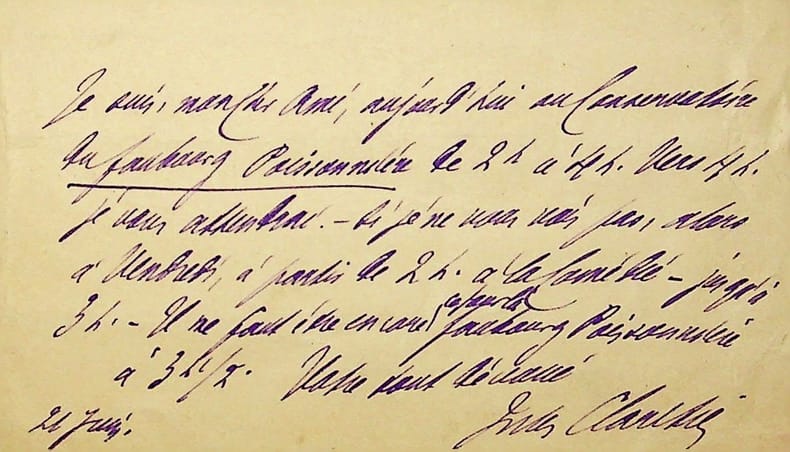 Je suis, mon cher Ami, aujourd'hui au Conservatoire
du faubourg Poissonnière de 2 h à 4 h. Vers 4 h.
je vous attendrai. – Si je ne vous vois pas, alors
à Vendredi, à partir de 2 h. à la Comédie – jusqu'à
3 h. – Il me faut être encore ce jour là faubourg Poissonnière
à 3 h 1/2. Votre tout dévoué
Jules Claretie
21 Juin.